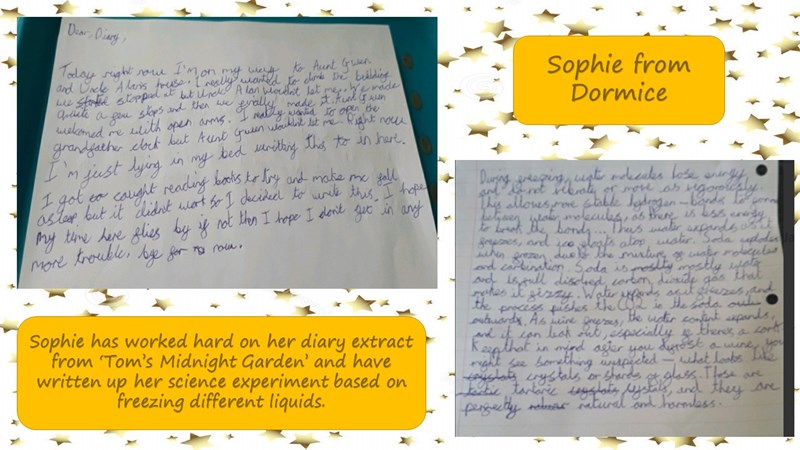 Dear, Diary,
Today right now I'm on my way to Aunt Gwen
and Uncle Alans house. I really wanted to climb the building
we stopped it but Uncle Alan Wouldnt let me. We made
quite a few stops and then we finally made it. Aunt Gwen
welcomed me with open arms. I really wanted to open the
grandfather clock but Aunt Gwen wouldnt let me. Right now
I'm just lying in my bed writting this to in here.
I got caught reading books to try and make me fall
asleep but it didnt work so I decided to write this. I hope
my time here flies by if not then I hope I dont get in any
more trouble, bye for now.
Sophie from
Dormice
During freezing, water molecules lose energy
and do not vibrate or move as vigorously.
This allows more stable hydrogen-bonds to form
between water molecules, as there is less energy
to break the bonds... Thus water expands as it
freezes, and ice floats atop water. Soda explodes
when frozen due to the mixture of water molecules
and carbonation. Soda is mostly water
and is full disolved carbon dioxide gas that
makes it fizzy. Water expands as it freezes, and
the process pushes the CO2 in the soda
outwards. As wine freezes, the water content expands,
and it can leak out, especially if theres a cork.
Keep that in mind after you defrost a wine, you
might see something unexpected - what looks like
crystals or shards of glass. These are
tartaric crystals, and they are
perfectly natural and harmless.
Sophie has worked hard on her diary extract
from 'Tom's Midnight Garden' and have
written up her science experiment based on
freezing different liquids.